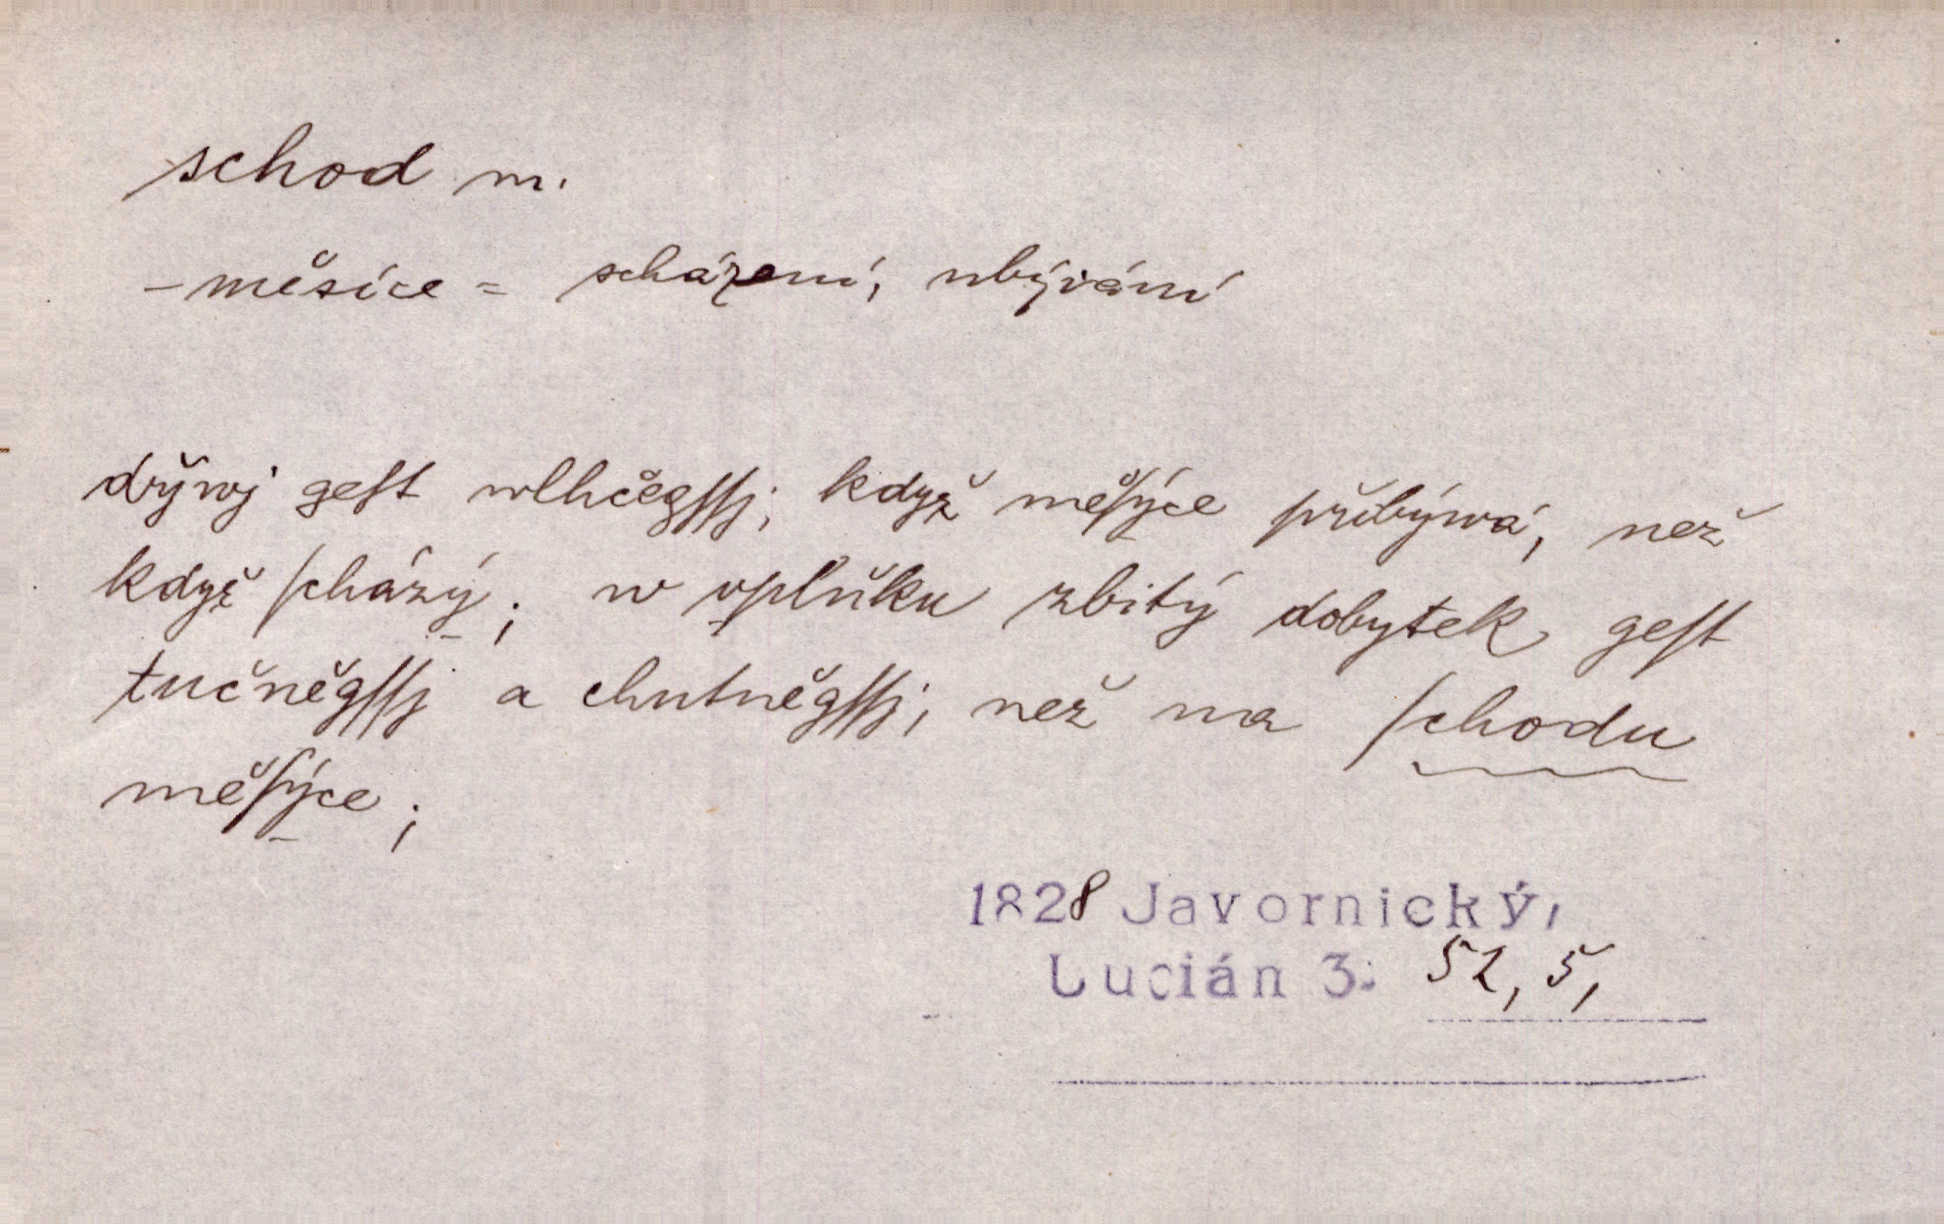 schod m.
– měsíce = scházení, ubývání
dřjwj geſt wlhčegſſj, když měſýce přibýwá, než
když ſcházý; w vplňku zbitý dobytek geſt
tučněgſſj a chutněgſſj, než na ſchodu
měſýce;
1828 Javornický,
Lucián 3. 52, 5,